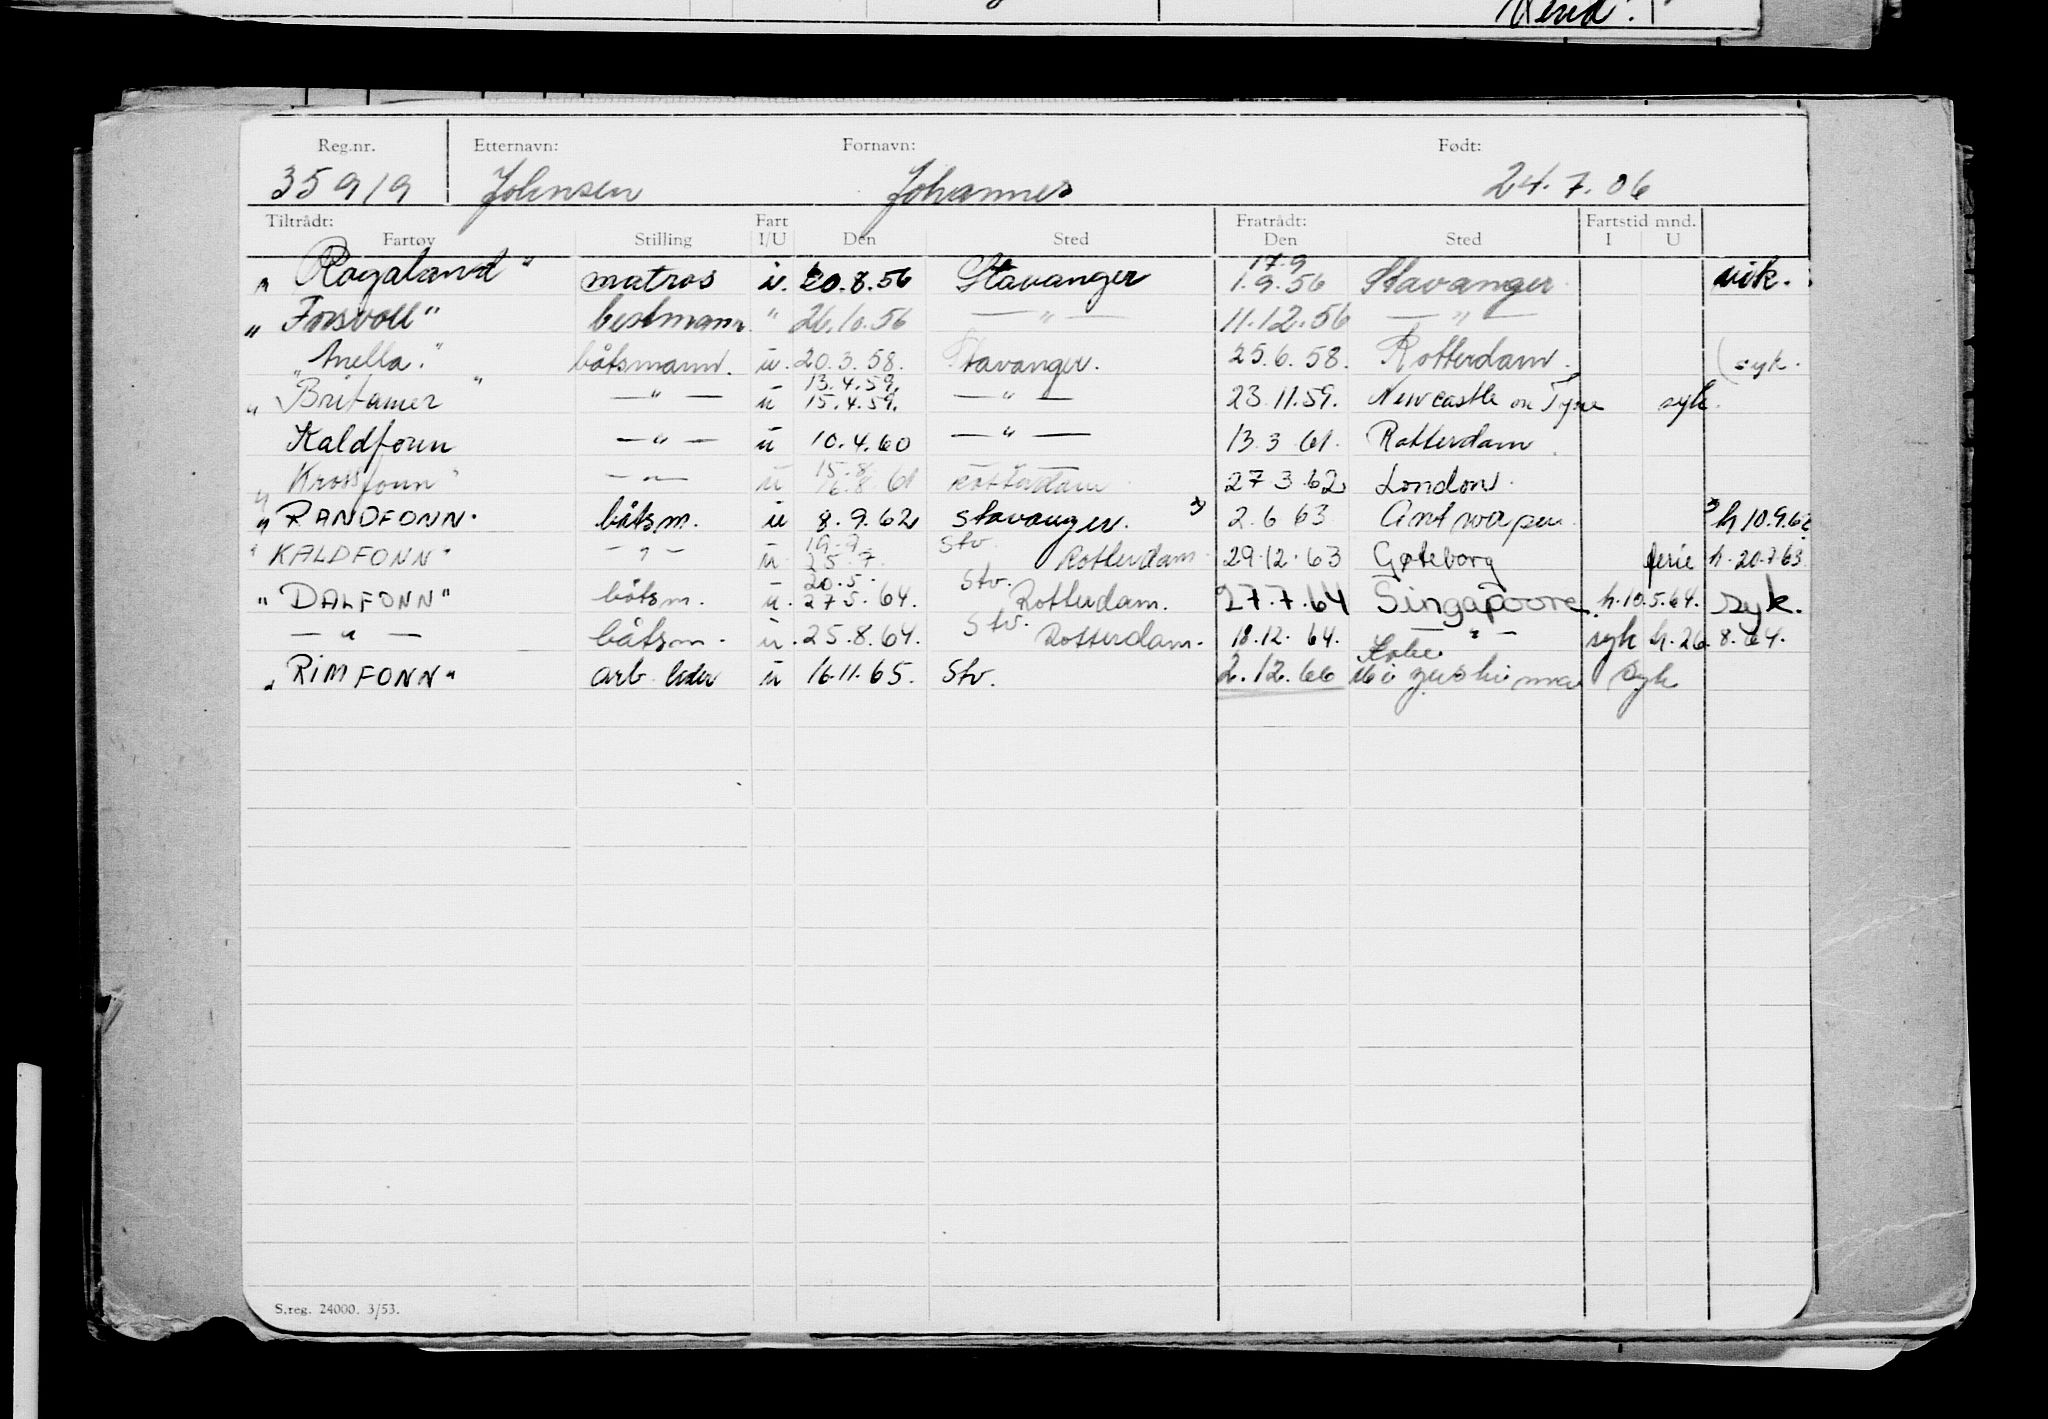 Vend.
Reg.nr. Etternavn: Fornavn: Født:
35919 Johnsen Johannes 24.7.06
Tiltrådt: Fart Fratrådt: Fartstid mnd.
Fartøy Stilling I/U Den Sted Den Sted I U
17.9
"Rogaland" matros i. 20.8.56 Stavanger 1.9.56 Stavanger vik.
"Forsvoll" bestmann " 26.10.56 — " — 11.12.56 — " —
"Anella." båtsmann. u. 20.3.58. Stavanger. 25.6.58. Rotterdam. (syk.
13.4.59.
"Britamer" — " — u 15.4.59. — " — 23.11.59. Newcastle on Tyne syk.
Kaldfonn — " — u 10.4.60 — " — 13.3.61. Rotterdam.
15.8.
"Krossfonn" — " — u 16.8.61 Rotterdam 27.3.62 London.
"RANDFONN. båtsm. u 8.9.62 Stavanger. *) 2.6.63 Antwerpen *h 10.9.62
19.7. Stv.
"KALDFONN" — " — u. 25.7. Rotterdam. 29.12.63 Gøteborg ferie h. 20.7.63.
20.5. Stv.
"DALFONN" båtsm. u. 27.5.64. Rotterdam. 27.7.64 Singapoore. h.10.5.64. syk.
Stv.
— " — båtsm. u. 25.8.64. Rotterdam. 18.12.64. — " — syk h.26.8.64.
Kobe
"RIMFONN" arb. leder u 16.11.65. Stv. 2.12.66 Mizushima syk
S.reg. 24000. 3/53.